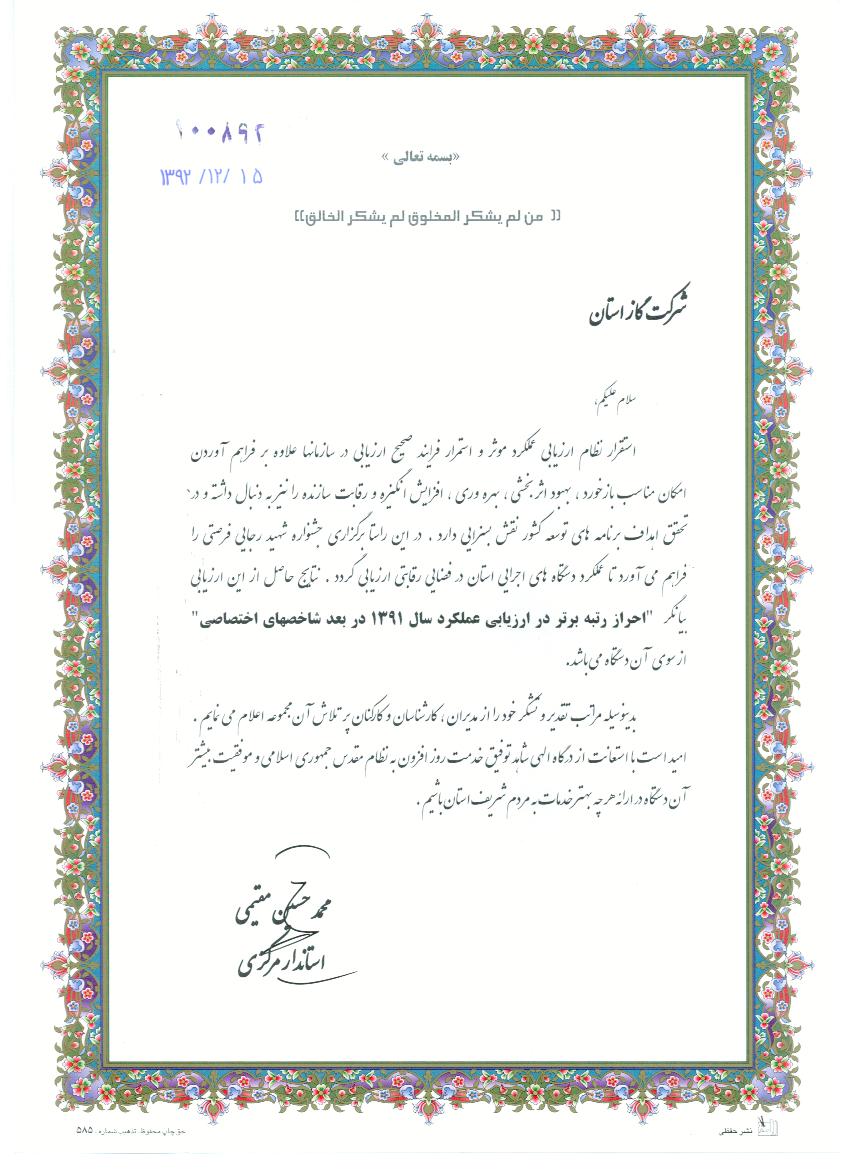 ۱۰۰۸۹۲
«بسمه تعالی »
۱۳۹۲/۱۲/۱۵
(( من لم یشکر المخلوق لم یشکر الخالق))
شرکت گاز استان
سلام علیکم،
استقرار نظام ارزیابی عملکرد موثر و استمرار فرایند صحیح ارزیابی در سازمانها علاوه بر فراهم آوردن
امکان مناسب بازخورد ، بهبود اثربخشی ، بهره وری ، افزایش انگیزه و رقابت سازنده را نیز به دنبال داشته و در
تحقق اهداف برنامه های توسعه کشور نقش بسزایی دارد . در این راستا برگزاری جشنواره شهید رجایی فرصتی را
فراهم می آورد تا عملکرد دستگاه های اجرایی استان در فضایی رقابتی ارزیابی گردد . نتایج حاصل از این ارزیابی
بیانگر "احراز رتبه برتر در ارزیابی عملکرد سال ۱۳۹۱ در بعد شاخصهای اختصاصی"
از سوی آن دستگاه می باشد.
بدینوسیله مراتب تقدیر و تشکر خود را از مدیران ، کارشناسان و کارکنان پر تلاش آن مجموعه اعلام می نمایم .
امید است با استعانت از درگاه الهی شاهد توفیق خدمت روز افزون به نظام مقدس جمهوری اسلامی و موفقیت بیشتر
آن دستگاه در ارائه هر چه بهتر خدمات به مردم شریف استان باشیم .
محمد حسین مقیمی
استاندار مرکزی
نشر حفظی
حق چاپ محفوظ تذهیب شماره: ۵۸۵